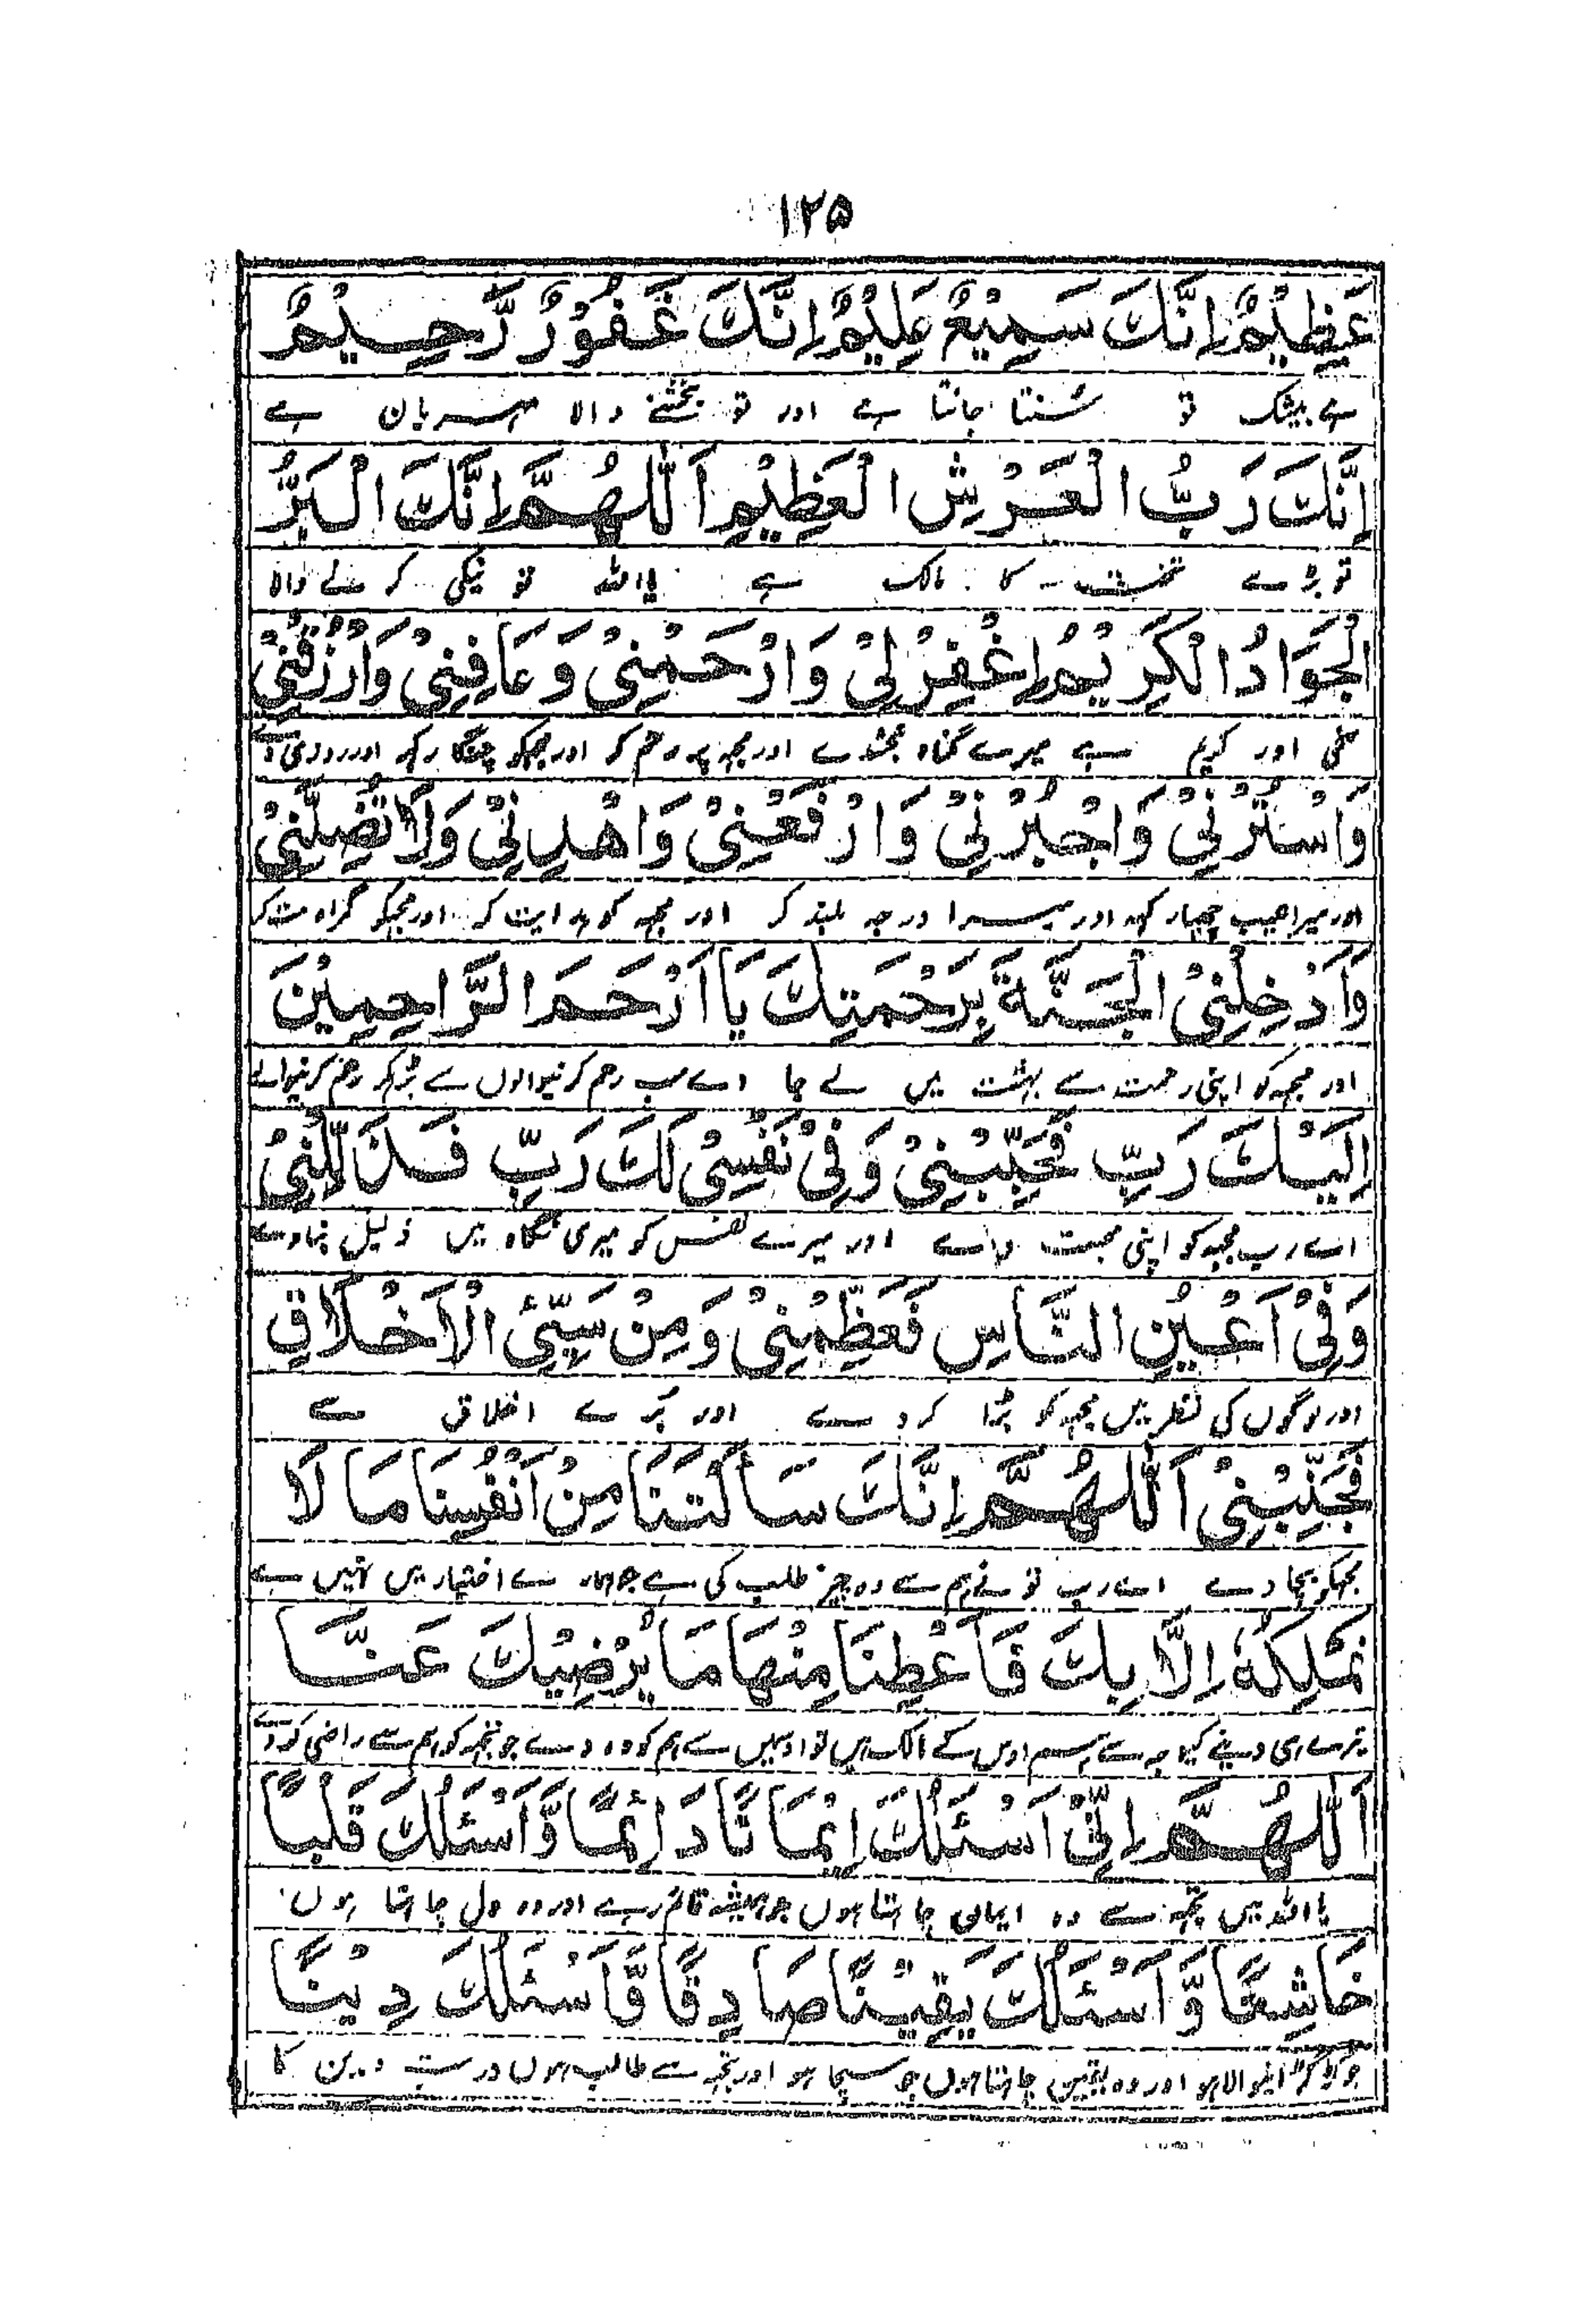 ۱۲۵
عَظِيْمٌ اِنَّكَ سَمِيْعٌ عَلِيْمٌ اِنَّكَ غَفُوْرٌ رَّحِيْمٌ
ہے بیشک تو سُنتا جانتا ہے اور تو بخشنے والا مہربان ہے
اِنَّكَ رَبُّ الْعَرْشِ الْعَظِيْمِ اَللّٰهُمَّ اِنَّكَ الْبَرُّ
تو بڑے تخت کا مالک ہے یااللہ تو نیکی کرنے والا
الْجَوَادُ الْكَرِيْمُ اِغْفِرْلِيْ وَارْحَمْنِيْ وَعَافِنِيْ وَارْزُقْنِيْ
سخی اور کریم ہے میرے گناہ بخشدے اور مجہہ پہ رحم کر اور مجہکو چنگا رکہہ اور روزی دے
وَاسْتُرْنِيْ وَاجْبُرْنِيْ وَارْفَعْنِيْ وَاهْدِنِيْ وَلَا تُضِلَّنِيْ
اور میرا عیب چھپا رکہہ اور میرا درجہ بلند کر اور مجہہ کو ہدایت کر اور مجہکو گمراہ مت کر
وَاَدْخِلْنِيْ الْجَنَّةَ بِرَحْمَتِكَ يَا اَرْحَمَ الرَّاحِمِيْنَ
اور مجہہ کو اپنی رحمت سے بہشت میں لے جا اے سب رحم کرنیوالوں سے بڑہکر رحم کرنیوالے
اِلَيْكَ رَبِّ فَحَبِّبْنِيْ وَفِيْ نَفْسِيْ لَكَ رَبِّ فَذَلِّلْنِيْ
اے رب مجہہ کو اپنی محبت دے اور میرے نفس کو میری نگاہ میں ذلیل بنادے
وَفِيْ اَعْيُنِ النَّاسِ فَعَظِّمْنِيْ وَمِنْ سَيِّئِ الْاَخْلَاقِ
اور لوگوں کی نظر میں مجہہ کو بڑا کردے اور بُرے اخلاق سے
فَجَنِّبْنِيْ اَللّٰهُمَّ اِنَّكَ سَاَلْتَنَا مِنْ اَنْفُسِنَا مَا لَا
مجہکو بچادے اے رب تو نے ہم سے وہ چیز طلب کی ہے جو ہمارے اختیار میں نہیں ہے
نَمْلِكُهٗ اِلَّا بِكَ فَاَعْطِنَا مِنْهَا مَا يُرْضِيْكَ عَنَّا
تیرے ہی دینے کیوجہ سے ہم اوس کے مالک ہیں تو اوسمیں سے ہم کو وہ دے جو تجہہ کو ہم سے راضی کردے
اَللّٰهُمَّ اِنِّيْ اَسْئَلُكَ اِيْمَانًا دَائِمًا وَّاَسْئَلُكَ قَلْبًا
یااللہ میں تجہہ سے وہ ایمان چاہتا ہوں جو ہمیشہ قائم رہے اور وہ دل چاہتا ہوں
خَاشِعًا وَّاَسْئَلُكَ يَقِيْنًا صَادِقًا وَّاَسْئَلُكَ دِيْنًا
جو گڑگڑانیوالا ہو اور وہ یقین چاہتا ہوں جو سچا ہو اور تجہہ سے طالب ہوں درست دین کا